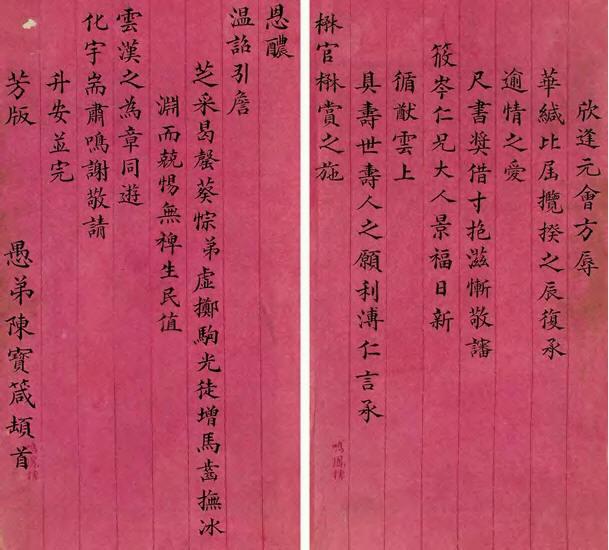 欣逢元會方辱
華緘比屆攬揆之辰復承
逾情之愛
尺書獎借寸抱滋慚敬諗
筱岑仁兄大人景福日新
循猷雲上
具壽世壽人之願利溥仁言承
楙官楙賞之施
鳴鳳樓
恩醲
温詔引詹
芝采曷罄葵悰弟虛擲駒光徒增馬齒撫冰
淵而兢惕無裨生民值
雲漢之為章同遊
化宇耑肅鳴謝敬請
升安並完
芳版
愚弟陳寶箴頓首
鳴鳳樓